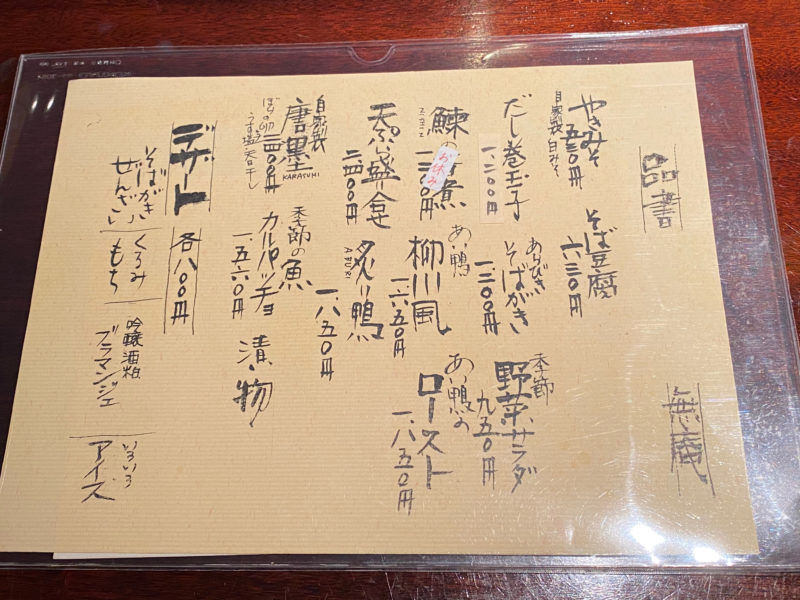 品書
無庵
やきみそ
自家製 白みそ
五五〇円
そば豆腐
六三〇円
だし巻玉子
一、二〇〇円
あらびき
そばがき
一、二〇〇円
季節
野菜サラダ
九五〇円
鰊の
煮
お休み
あい鴨
柳川風
一、六五〇円
あい鴨の
ロースト
一、八五〇円
天ぷら盛合せ
二、四〇〇円
炙り鴨
ABURI
一、八五〇円
自家製
唐墨
KARASUMI
二、四〇〇円
ぼらの卵
うす塩 天日干し
季節の魚
カルパッチョ
一、五六〇円
漬物
デザート 各八〇〇円
そばがき
ぜんざい
くるみ
もち
吟醸酒粕
ブラマンジェ
いろいろ
アイス